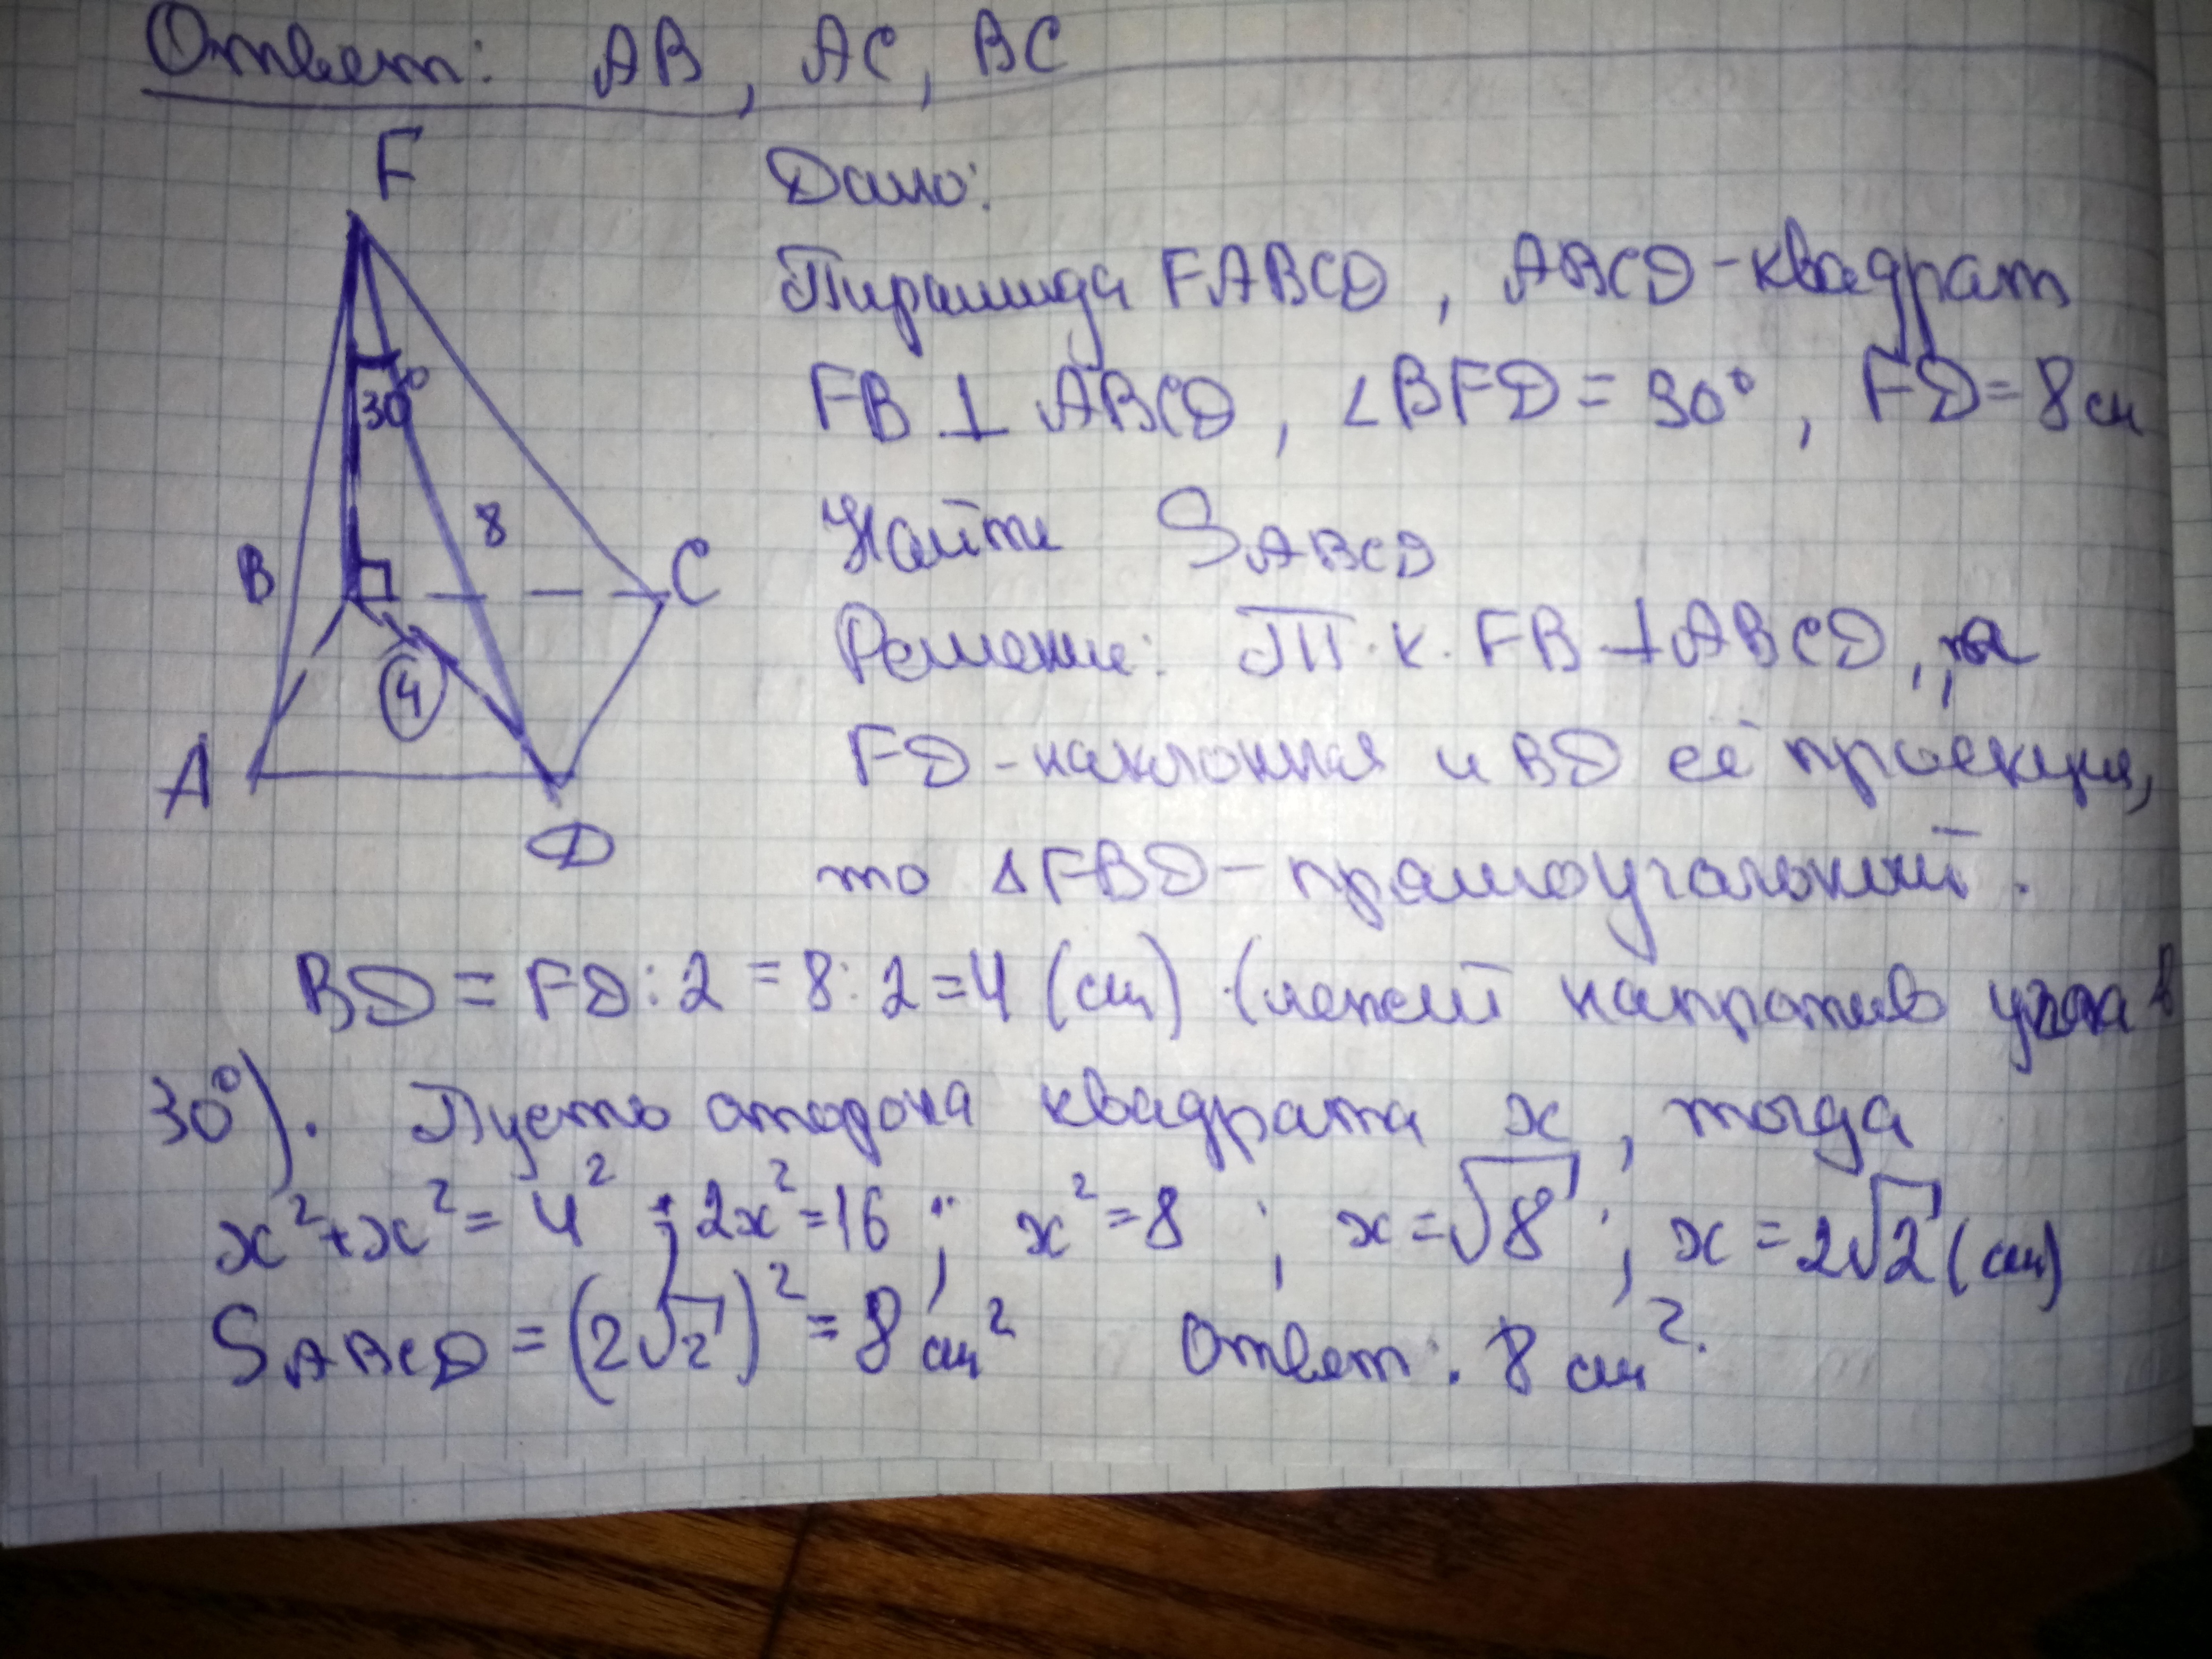 Ответ: AB, AC, BC
F
Дано:
Пирамида FABCD, ABCD-квадрат
FB ⊥ ABCD, ∠BFD = 30°, FD = 8 см
30°
8
B
C
4
A
D
Найти S ABCD
Решение: Т.к. FB ⊥ ABCD, а
FD - наклонная и BD её проекция,
то ΔFBD - прямоугольный.
BD = FD : 2 = 8 : 2 = 4 (см) (лежит напротив угла в
30°). Пусть сторона квадрата x, тогда
x² + x² = 4² ; 2x² = 16 ; x² = 8 ; x = √8 ; x = 2√2 (см)
S ABCD = (2√2)² = 8 см² Ответ: 8 см².